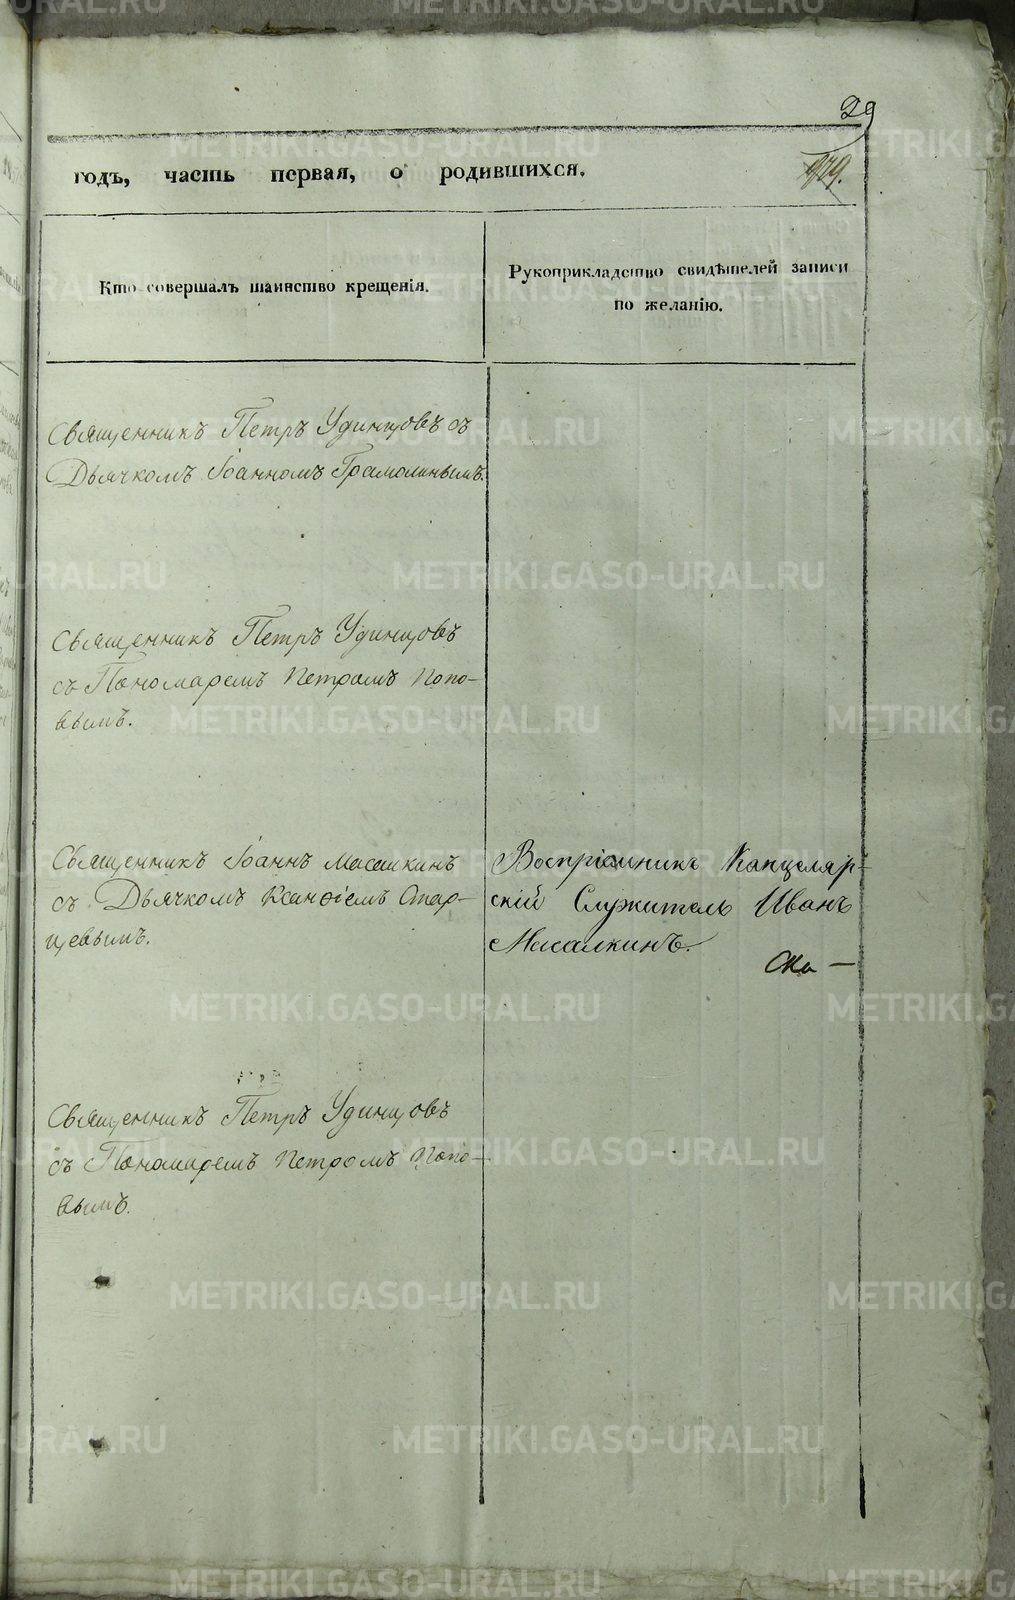 29
годъ, часть первая, о родившихся.
Кто совершалъ таинство крещенія.
Рукоприкладство свидѣтелей записи
по желанію.
Священникъ Петръ Удинцовъ съ
Дьячкомъ Іоанномъ Грамолинымъ.
Священникъ Петръ Удинцовъ
съ Пономаремъ Петромъ Попо-
вымъ.
Священникъ Іоаннъ Масалкинъ
съ Дьячкомъ Ксанѳіемъ Стар-
цевымъ.
Воспріемникъ Канцеляр-
скій Служитель Иванъ
Масалкинъ.
Священникъ Петръ Удинцовъ
съ Пономаремъ Петромъ Попо-
вымъ.
METRIKI.GASO-URAL.RU